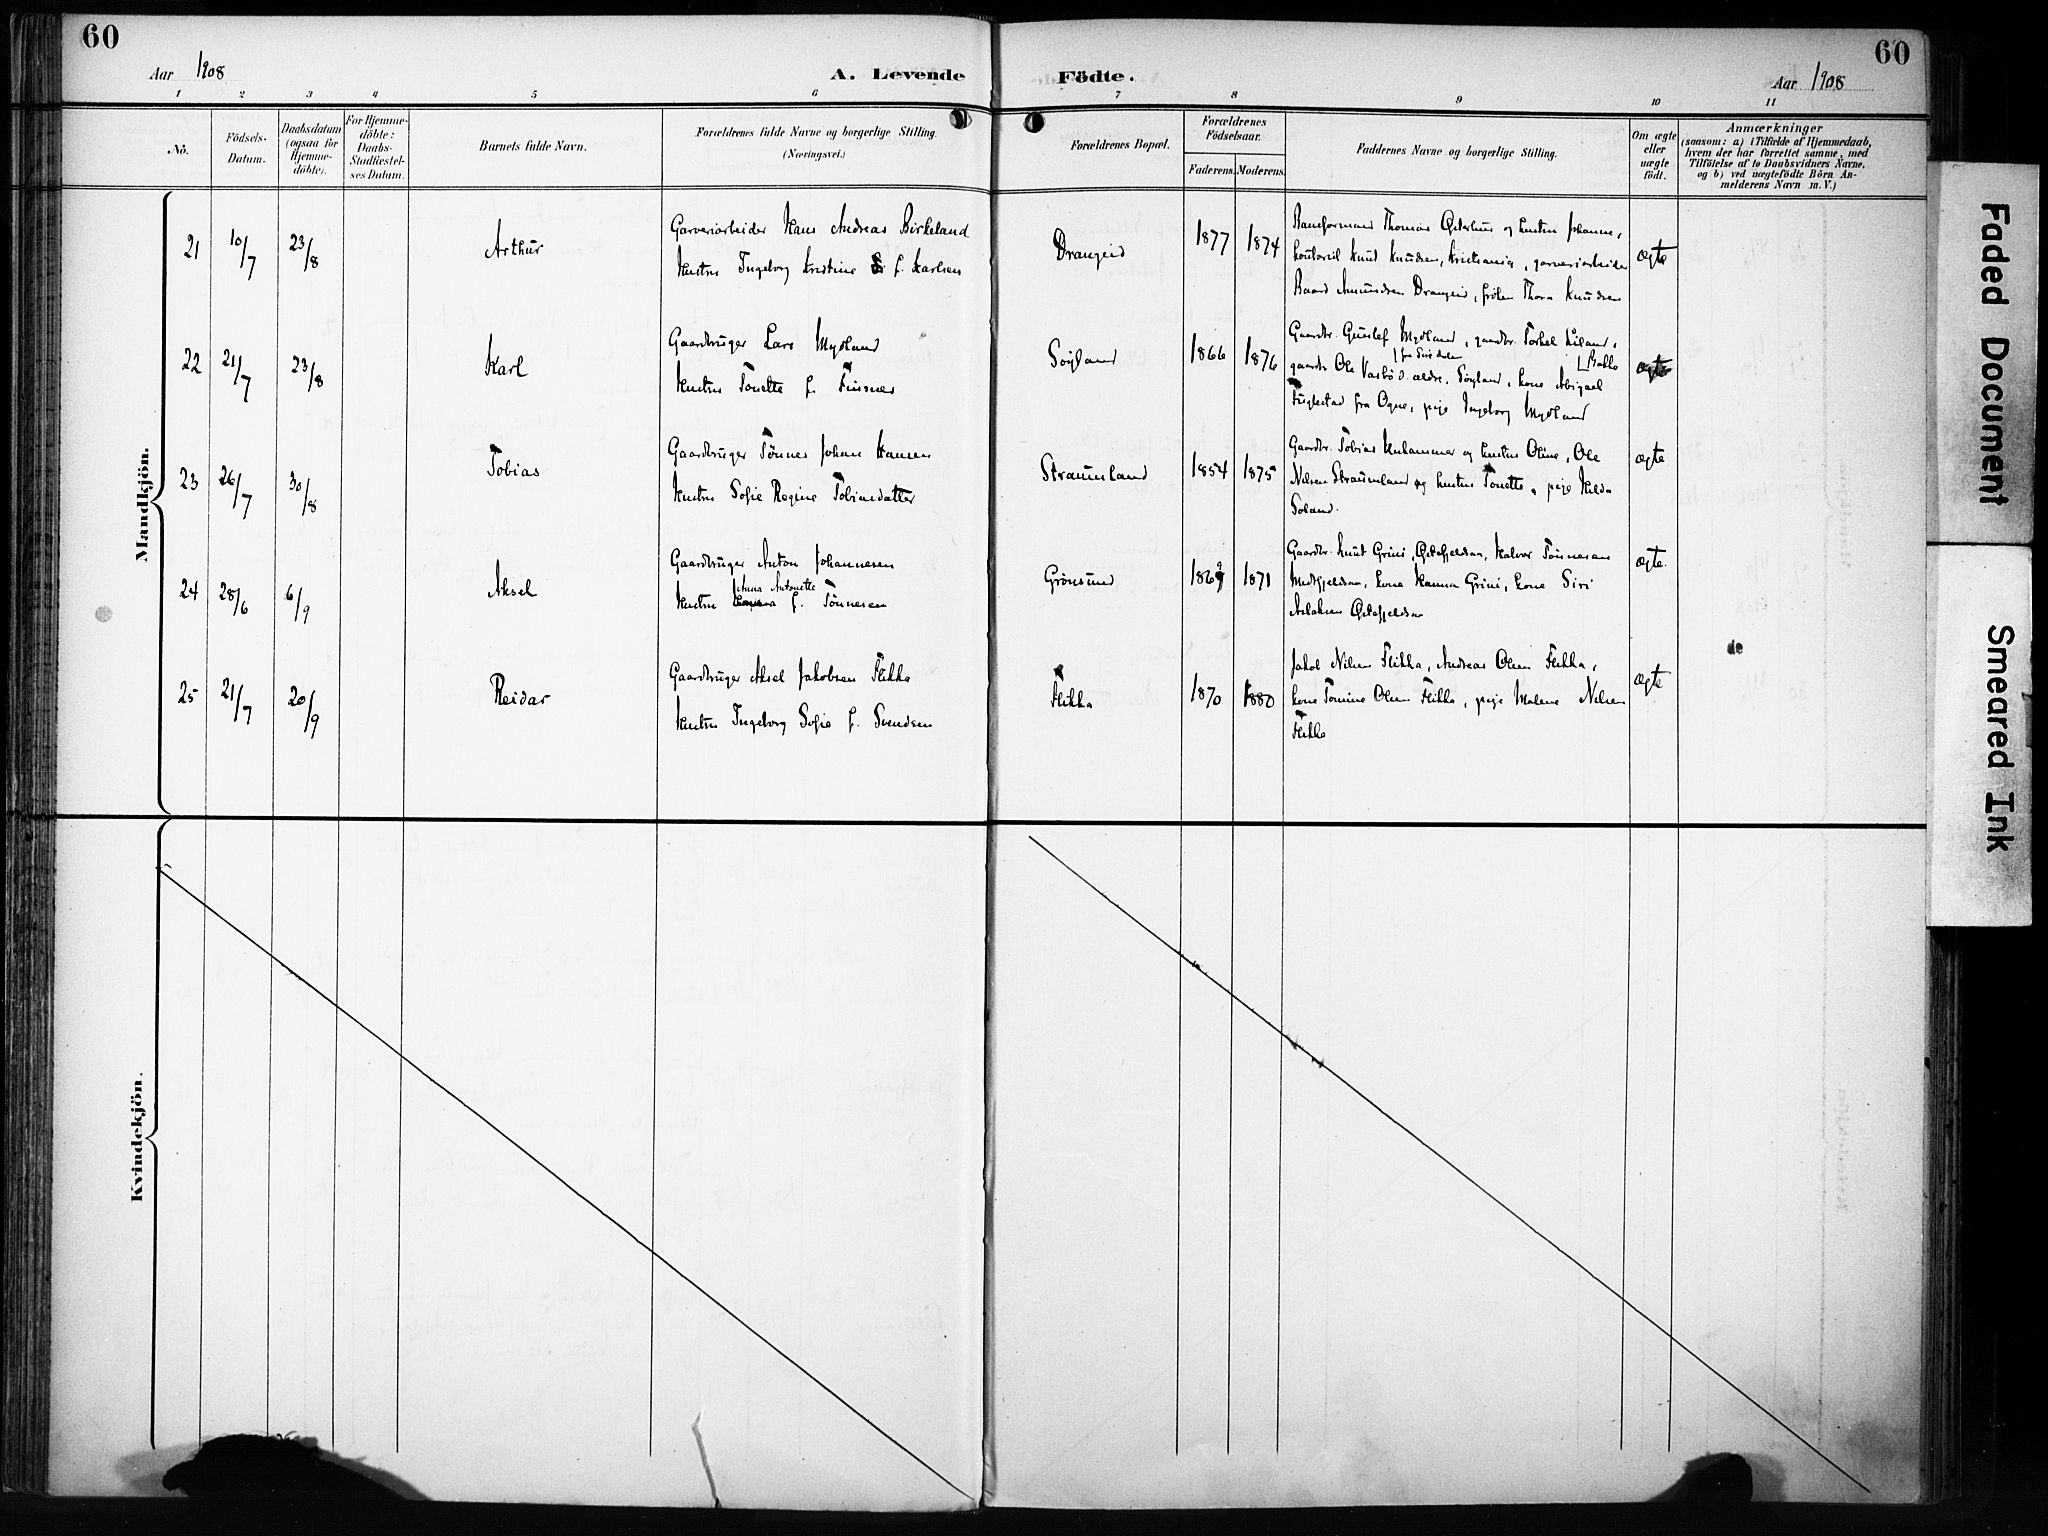 60
60
Aar 1908
A. Levende
Födte.
Aar 1908
1 2 3 4 5 6 7 8 9 10 11
No.
Födsels-Datum.
Daabsdatum (ogsaa for Hjemme-döbte).
For Hjemme-döbte: Daabs-Stadfæstel-ses Datum.
Barnets fulde Navn.
Forældrenes fulde Navne og borgerlige Stilling.
(Næringsvei.)
Forældrenes Bopæl.
Forældrenes Födselsaar.
Faderens. Moderens.
Faddernes Navne og borgerlige Stilling.
Om ægte eller uægte födt.
Anmærkninger
(saasom: a) i Tilfælde af Hjemmedaab,
hvem der har forrettet samme, med
Tilföielse af to Daabsvidners Navne.
og b) ved uægtefödte Börn An-
melderens Navn m. V.)
Mandkjön.
21 10/7 23/8 Arthur
Garveriarbeider Hans Andreas Birkeland
Hustru Ingeborg Kristine f. Karlsen
Drangeid 1877 1874
Baneformand Thomas Østerhus og hustru Johanne,
kontorist Knut Knudsen, Kristiania, garveriarbeider
Baard Amundsen Drangeid, frøken Thora Knudsen
ægte
22 21/7 23/8 Karl
Gaardbruger Lars Mydland
Hustru Tonette f. Finsnes
Søyland 1866 1876
Gaardbr. Gustaf Mydland, gaardbr. Torkel Liland,
fra Siredalen Bakke
gaardbr Ole Vasbø d. ældre, Søyland, kone Abigael
Fuglestad fra Ogne, pige Ingeborg Mydland
ægte
23 26/7 30/8 Tobias
Gaardbruger Tønnes Johan Hansen
Hustru Sofie Regine Tobiasdatter
Straumland 1854 1875
Gaardbr. Tobias Unhammer og hustru Oline, Ole
Nilsen Straumland og hustru Tonette, pige Hilda
Soland.
ægte
24 28/6 6/9 Aksel
Gaardbruger Anton Johannesen
Anna Antonette
Hustru f. Tønnesen
Grønsund 1869 1871
Gaardbr. Knut Grini, Østefjeldsaa, Halvor Tønnesen
Midtfjeldsaa, kone Hanna Grini, kone Siri
Aslaksen Østefjeldsaa
ægte.
25 21/7 20/9 Reidar
Gaardbruger Aksel Jakobsen Flikka
Hustru Ingeborg Sofie f. Svendsen
Flikka 1870 1880
Jakob Nilsen Flikka, Andreas Olsen Flikka,
kone Tomine Olsen Flikka, pige Malene Nilsen
Flikka
ægte
de
Kvindekjön.
Faded Document
Smeared Ink